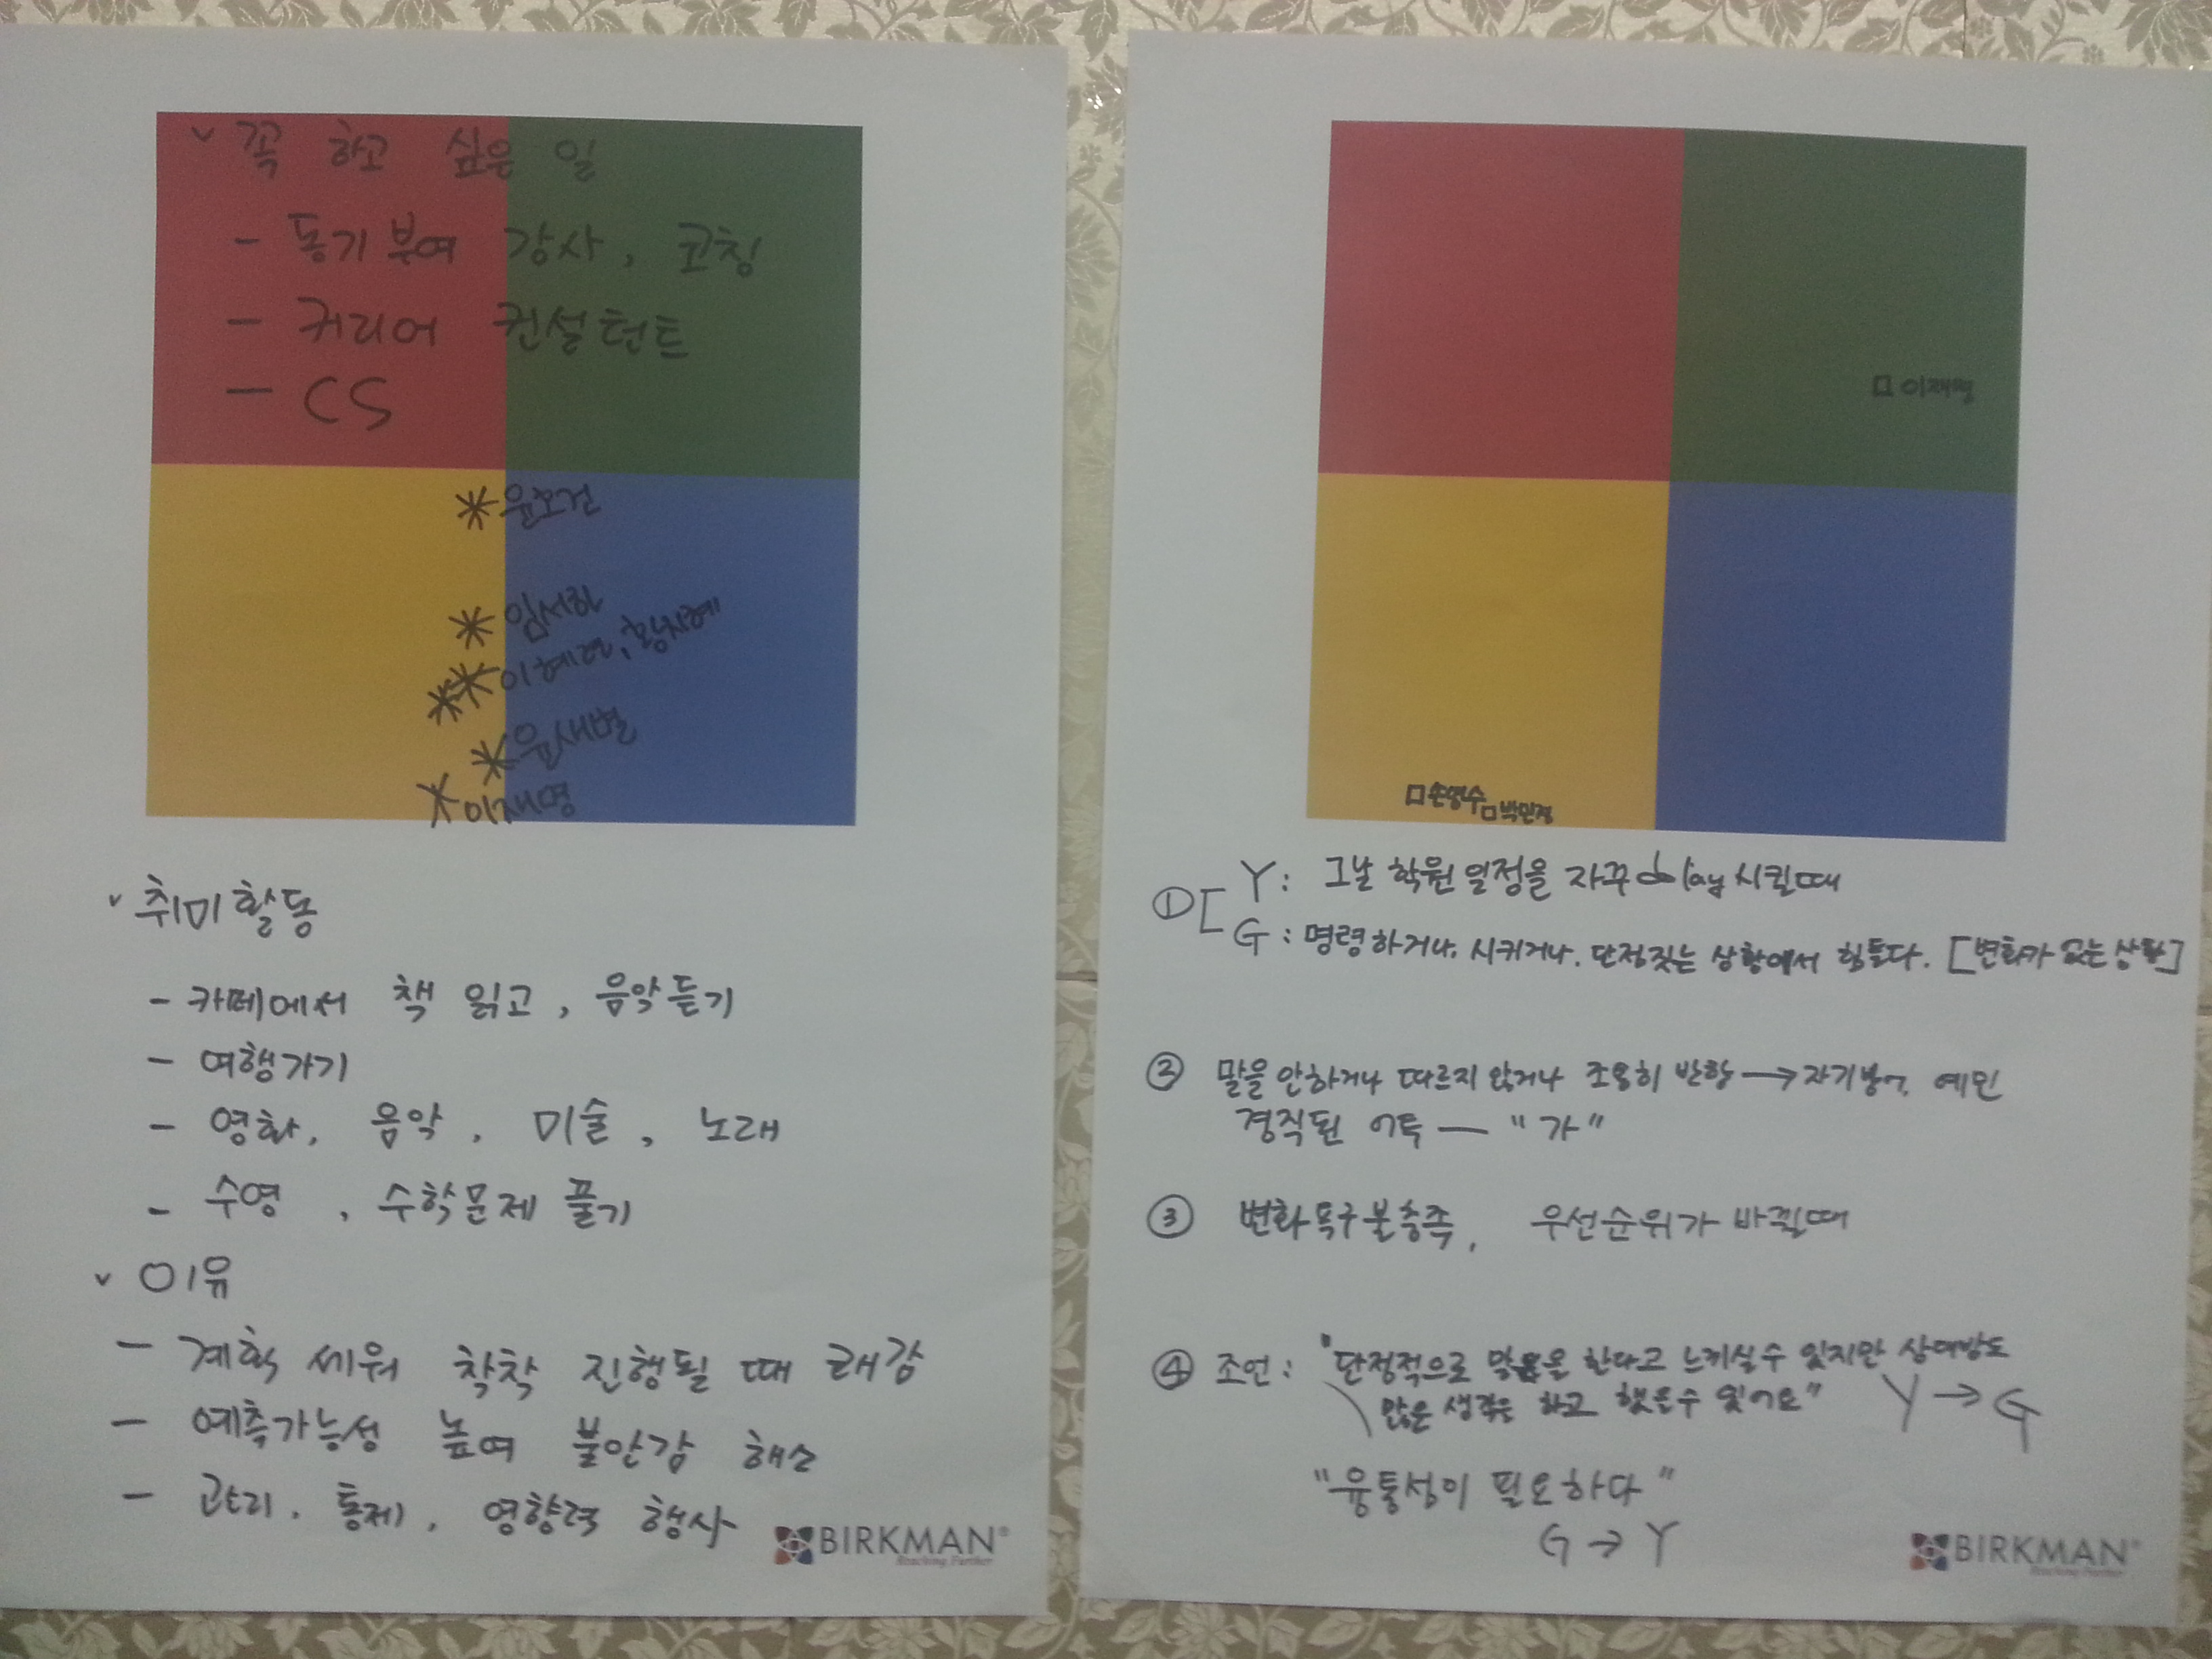 v 꼭 하고 싶은 일
- 동기부여 강사, 코칭
- 커리어 컨설턴트
- CS
* 윤호건
* 임서하
** 이혜련, 황지혜
* 윤새별
* 이재명
v 취미활동
- 카페에서 책 읽고, 음악듣기
- 여행가기
- 영화, 음악, 미술, 노래
- 수영, 수학문제 풀기
v 이유
- 계획 세워 착착 진행될 때 쾌감
- 예측가능성 높여 불안감 해소
- 관리, 통제, 영향력 행사
BIRKMAN®
Reaching Further
□ 이재명
□ 손영수 □ 박민정
① [ Y: 그날 학원 일정을 자꾸 delay 시킬때
G: 명령하거나, 시키거나, 단정짓는 상황에서 힘들다. [변화가 없는 상황]
② 말을 안하거나 따르지 않거나 조용히 반항 → 자기방어, 예민
경직된 어투 — "가"
③ 변화욕구불충족, 우선순위가 바뀔때
④ 조언: "단정적으로 말을 한다고 느끼실수 있지만 상대방도
많은 생각을 하고 했을수 있어요" Y → G
"융통성이 필요하다"
G → Y
BIRKMAN®
Reaching Further